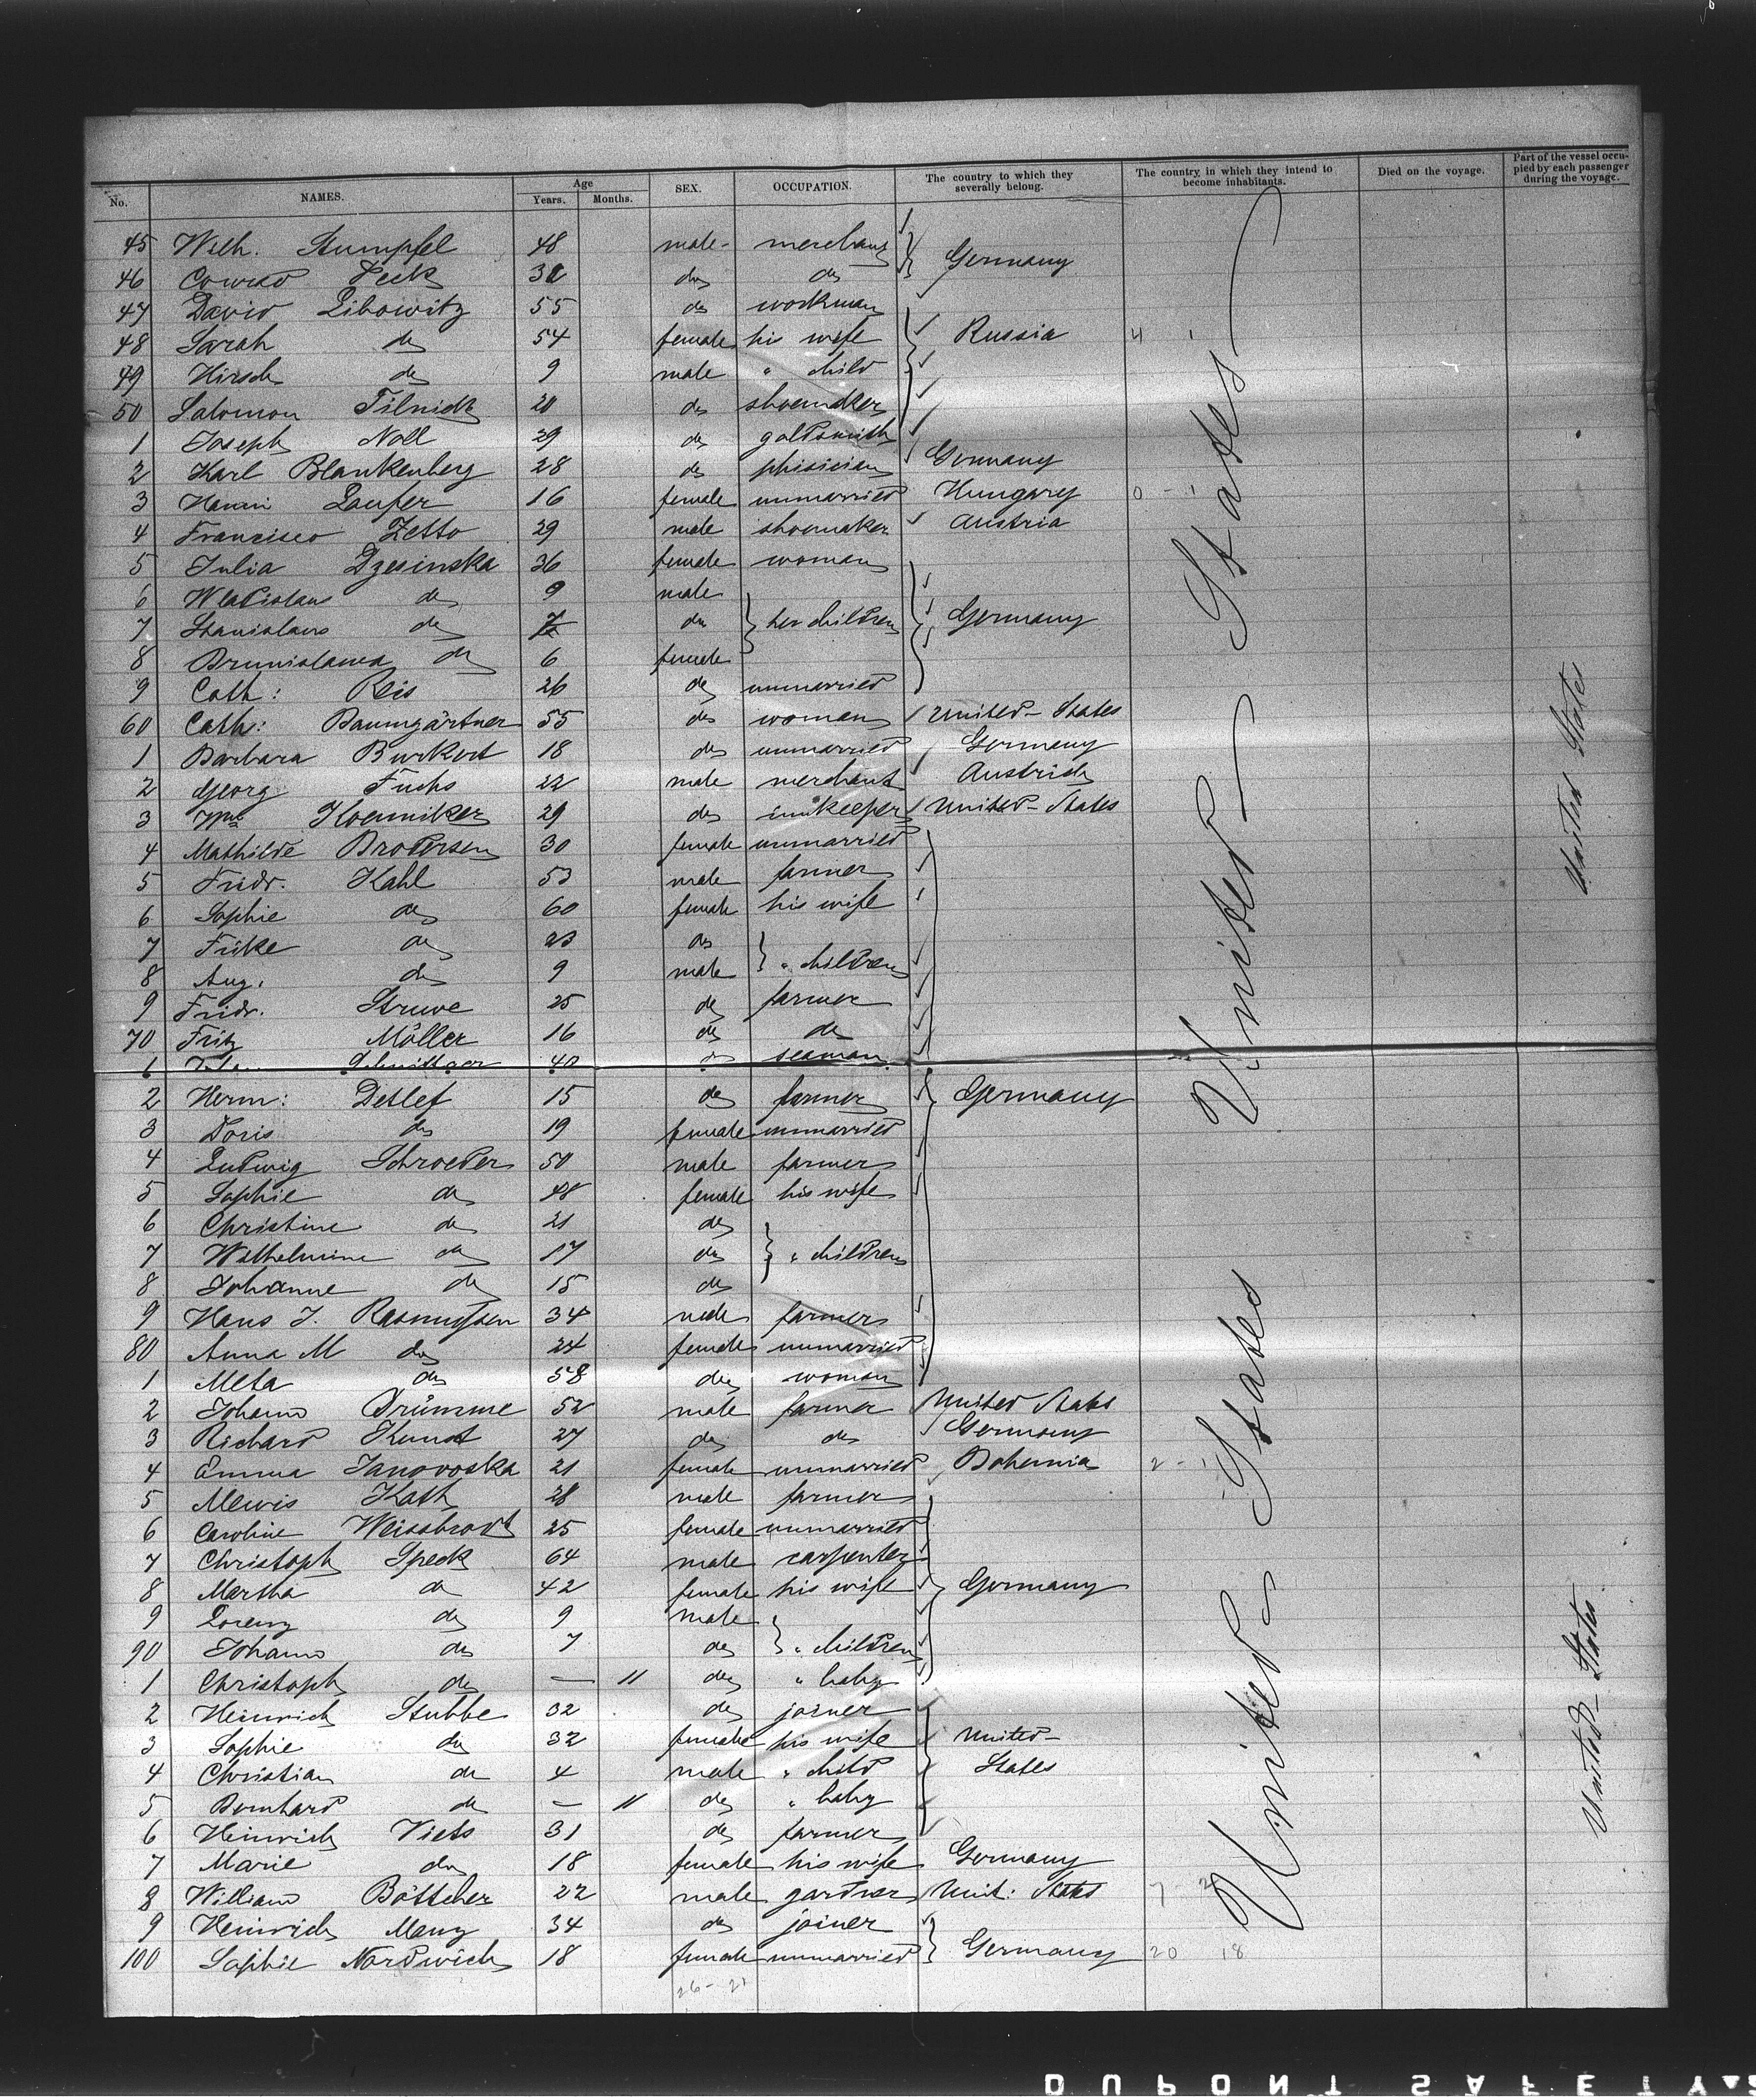 No. NAMES. Age Years. Months. SEX. OCCUPATION. The country to which they severally belong. The country in which they intend to become inhabitants. Died on the voyage. Part of the vessel occupied by each passenger during the voyage.
45 Wilh. Stumpfel 48 male merchant
Germany
46 Conrad 3 do do
47 David Libowitz 55 do workman
48 Sarah do 54 female his wife Russia 4 1
49 Hirsch do 9 male " child
50 Salomon Tilnick 20 do shoemaker
1 Joseph Noll 29 do goldsmith
2 Karl Blankenberg 28 do phisician Germany
3 Hanni Laufer 16 female unmarried Hungary 0 - 1
4 Francisco Zetto 29 male shoemaker Austria
5 Julia Dzesinska 36 female woman
6 Wladislaus do 9 male
7 Stanislaus do 7 do her children Germany
8 Brunislawa do 6 female
9 Cath: Reis 26 do unmarried
60 Cath: Baumgärtner 55 do woman United-States
1 Barbara Burkert 18 do unmarried Germany
2 Georg Fuchs 22 male merchant Austria
3 Wm Hoenniker 29 do innkeeper United-States
4 Mathilde Brodersen 30 female unmarried
5 Fridr. Kahl 53 male farmer
6 Sophie do 60 female his wife
7 Frike do 23 do
8 Aug. do 9 male " children
9 Fridr. Struve 25 do farmer
70 Fritz Möller 16 do do
1 40 do seaman
2 Herm: Detlef 15 do farmer Germany
3 Doris do 19 female unmarried
4 Ludwig Schroeder 50 male farmer
5 Sophie do 48 female his wife
6 Christine do 21 do
7 Wilhelmine do 17 do " children
8 Johanne do 15 do
9 Hans J. Rasmussen 34 male farmer
80 Anna M do 24 female unmarried
1 Meta do 58 do woman
2 Johann Brümme 52 male farmer United States
3 Richard Kunst 27 do do Germany
4 Emma Janovoska 21 female unmarried Bohemia 2 - 1
5 Mewis Kath 28 male farmer
6 Caroline Weissbrodt 25 female unmarried
7 Christoph Speck 64 male carpenter
8 Martha do 42 female his wife Germany
9 Lorenz do 9 male
90 Johann do 7 do " children
1 Christoph do — 11 do " baby
2 Heinrich Stubbe 32 do joiner
3 Sophie do 32 female his wife United-
4 Christian do 4 male " child States
5 Bernhard do — 11 do " baby
6 Heinrich Viets 31 do farmer
7 Marie do 18 female his wife Germany
8 William Böttcher 22 male gardner Unit: States 7 - 2
9 Heinrich Menz 34 do joiner
100 Sophie Nordwich 18 female unmarried Germany 20 18
26 - 21
United States
United States
United States
United States
DUPONT SAFETY